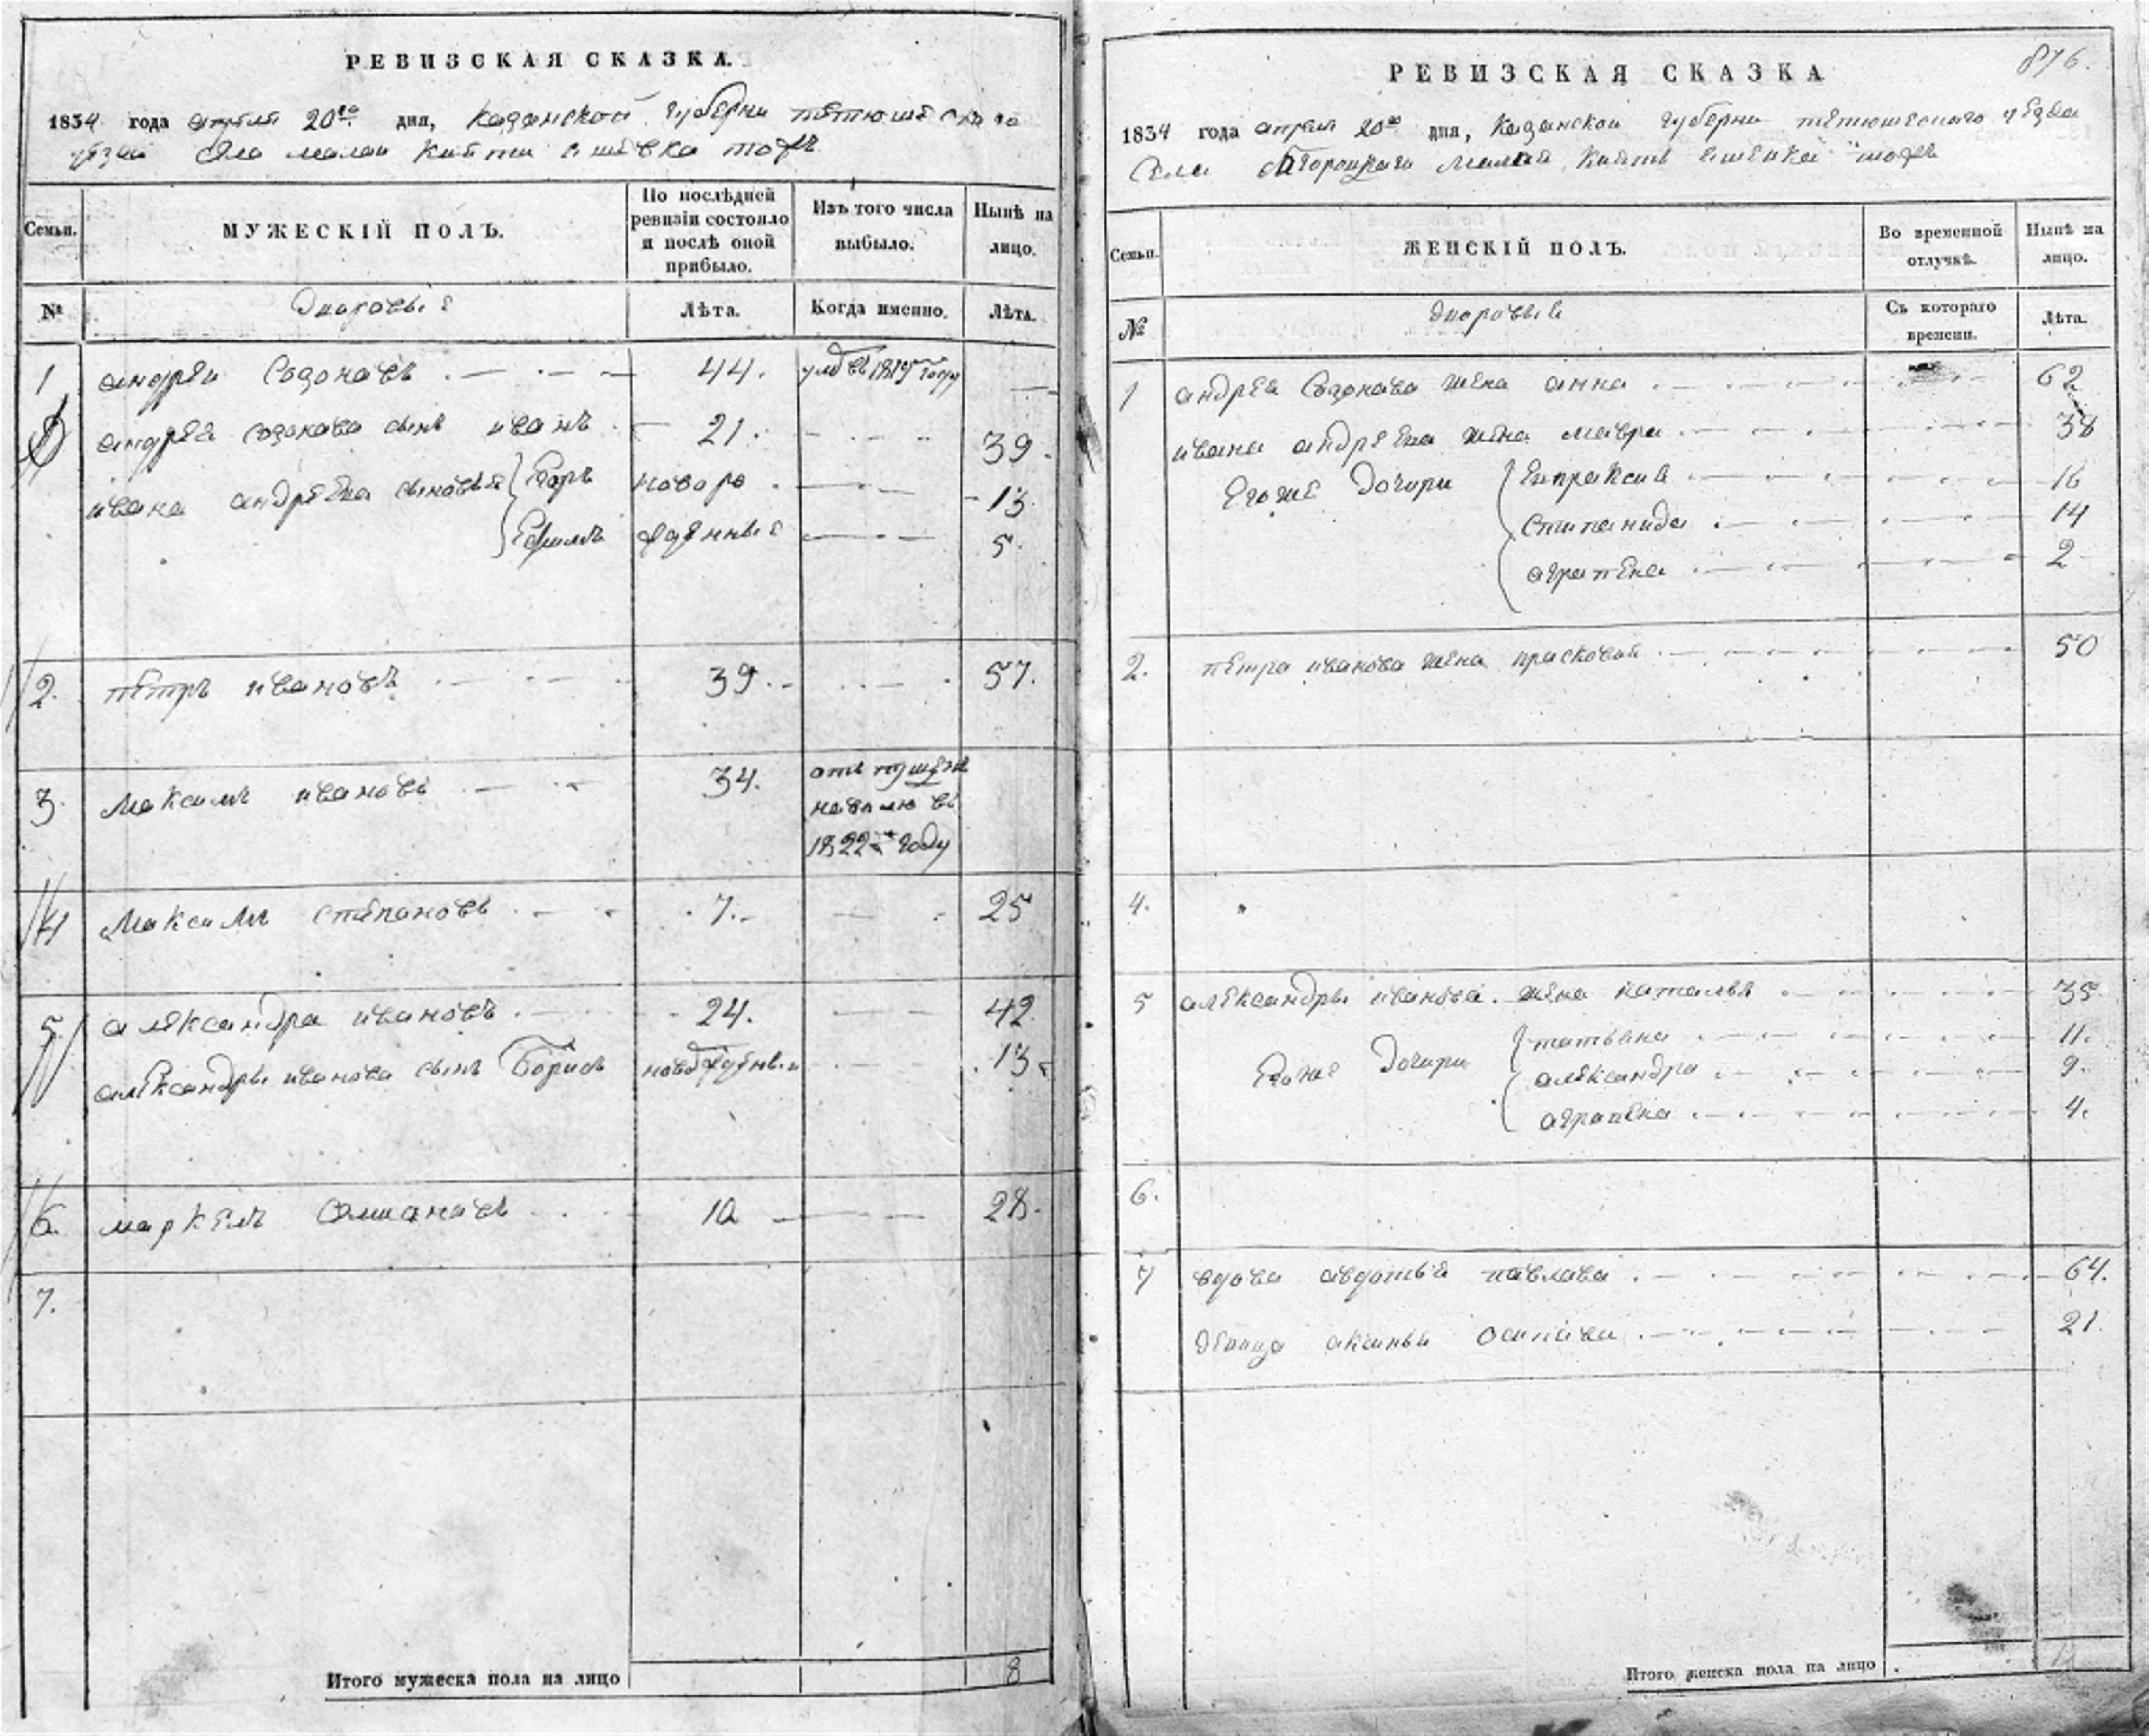 РЕВИЗСКАЯ СКАЗКА.
1834 года апреля 20го дня, Казанской губерни тетюшескаго
уезда села малаи
Семьи.
МУЖЕСКІЙ ПОЛЪ.
По послѣдней ревизіи состояло и послѣ оной прибыло.
Изъ того числа выбыло.
Нынѣ на лицо.
№
дворовые
Лѣта.
Когда именно.
Лѣта.
1 андреи Созоновъ 44. 1819 году
андреа созонова сынъ иванъ 21. 39.
ивана андреева сыновья Егоръ новоро 13
Ефимъ жденные 5.
2. петръ ивановъ 39. 57.
3. Максимъ ивановъ 34. отъ пущенъ
наволю въ
1822 году
4 Максимъ степановъ 7. 25
5 александра ивановъ 24. 42
александры иванова сынъ Борисъ 13
6. маркелъ 10 28.
7.
Итого мужеска пола на лицо 8
РЕВИЗСКАЯ СКАЗКА
876.
1834 года апреля 20го дня, Казанской губерни тетюшескаго уезда
Села
Семьи.
ЖЕНСКІЙ ПОЛЪ.
Во временной отлучкѣ.
Нынѣ на лицо.
№
дворовые
Съ котораго времени.
Лѣта.
1 андреа Созонова жена анна 62
ивана андреева жена мавра 38
Егоже дочери Евпраксия 16
степанида 14
аграпена 2
2. петра иванова жена прасковья 50
4.
5 александры иванова жена наталья 35
Егоже дочери татьяна 11.
александра 9.
аграпена 4.
6.
7 вдова авдотья павлава 64.
девица аксинья осипава 21.
Итого женска пола на лицо